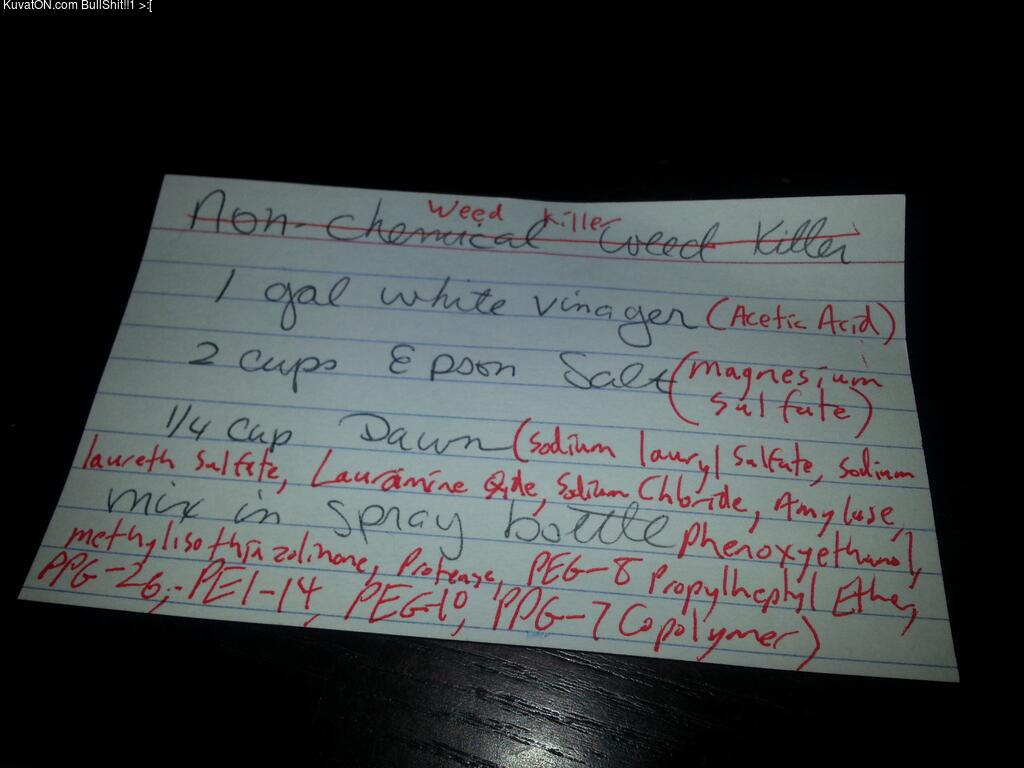 KuvatON.com BullShit!!1 >:[
Weed Killer
Non-Chemical Weed Killer
1 gal white vinager (Acetic Acid)
2 cups Epson Salt (magnesium
sulfate)
1/4 cup Dawn (Sodium lauryl sulfate, sodium
laureth sulfate, Lauramine Oxide, Sodium Chloride, Amylase,
mix in spray bottle phenoxyethanol,
methylisothiazolinone, Protease, PEG-8 Propylheptyl Ether,
PPG-26, -PEI-14, PEG-10, PPG-7 Copolymer)